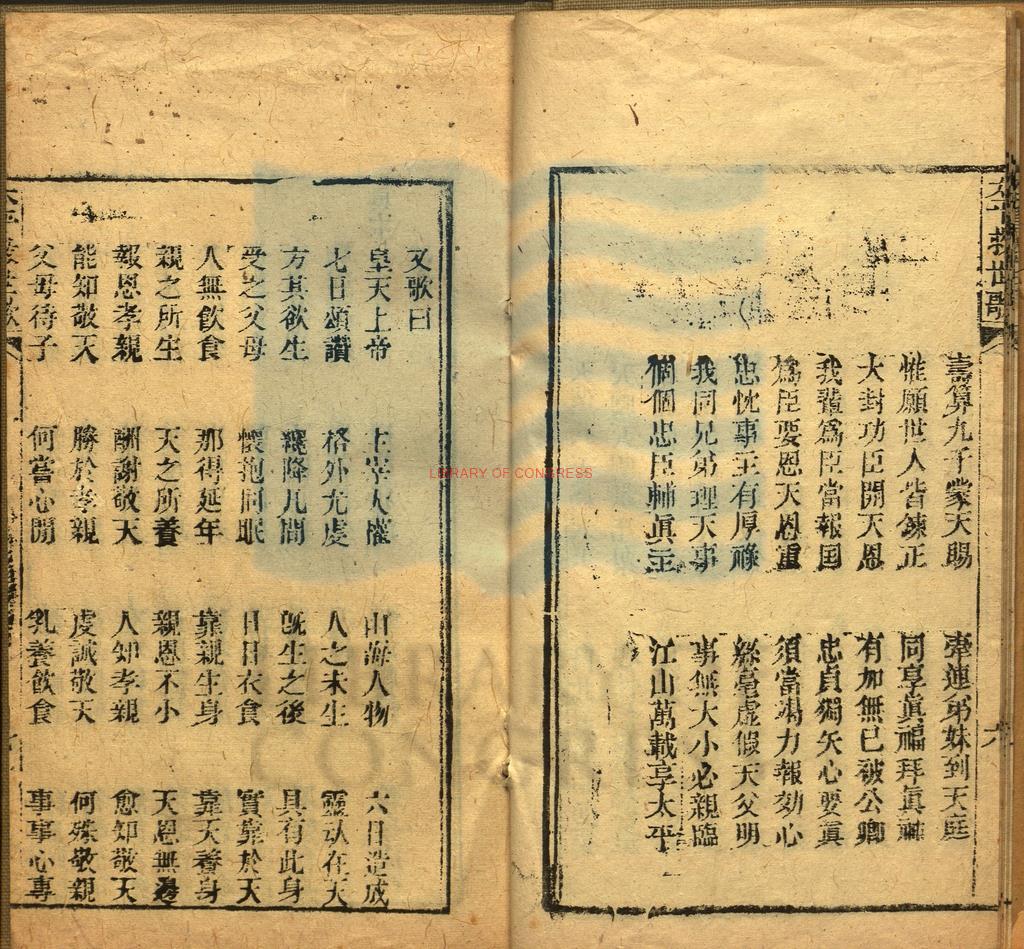 太平救世歌
六
壽算九千蒙天賜 牽連弟妹到天庭
惟願世人皆鍊正 同享眞福拜眞神
大封功臣開天恩 有加無已破公卿
我輩爲臣當報国 忠貞獨矢心要眞
爲臣要恩天恩重 須當竭力報効心
忠忱事主有厚祿 絲毫虛假天父明
我同兄弟理天事 事無大小必親臨
個個忠臣輔眞主 江山萬載享太平
又歌曰
皇天上帝 主宰大權 山海人物 六日造成
七日頌讚 格外尤虔 人之未生 靈魂在天
方其欲生 纔降凡間 旣生之後 具有此身
受之父母 懷抱同眠 日日衣食 實靠於天
人無飮食 那得延年 靠親生身 靠天養身
親之所生 天之所養 親恩不小 天恩無邊
報恩孝親 酬謝敬天 人知孝親 愈知敬天
能知敬天 勝於孝親 虔誠敬天 何殊敬親
父母待子 何嘗心閒 乳養飮食 事事心專
太平救世歌
LIBRARY OF CONGRESS